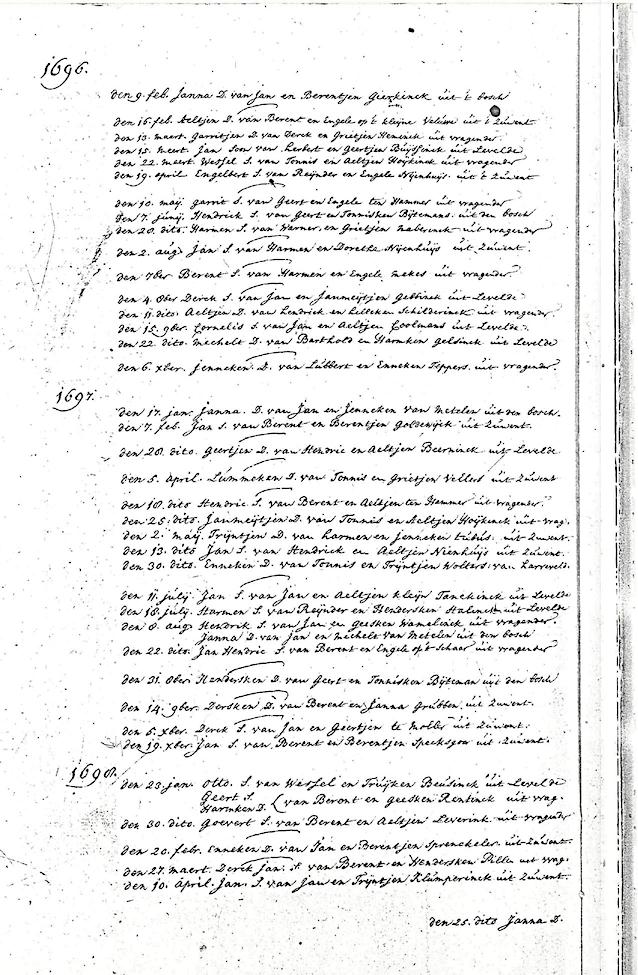 1696.
den 9. feb. Janna D. van Jan en Berentjen Giezkinck uit 't bosch
den 16. feb. Aeltjen D. van Berent en Engele op 't kleijne Veluwe uit 't Zuwent
den 13. maert. Garritjen D. van Derck en Grietjen Heminck uit vragender
den 15. meert. Jan Soon van Herbert en Geertjen Buijssinck uit Levelde
den 22. maert. Wessel S. van Tonnis en Aeltjen Hoijkinck uit vragender
den 19. april. Engelbert S. van Reijnder en Engele Nijenhuijs uit 't Zuwent
den 10. maij. garrit S. van Geert en Engele ten Hammer uit vragender
den 7. Junij. Hendrick S. van Geert en Tonnisken Bijtemans uit den bosch
den 20. dito. Harmen S. van Warner en Grietjen Maberinck uit vragender
den 2. aug. Jan S. van Harmen en Dorethe Nijenhuijs uit Zuwent.
den 7ber Berent S. van Harmen en Engele Mekes uit vragender
den 4. 8ber Derck S. van Jan en Janmeijtjen Gebbinck uit Levelde
den 11. dito Aeltjen D. van Hendrick en Lelleken Schilderinck uit vragender.
den 15. 9ber. Cornelis S. van Jan en Aeltjen Coolmans uit Levelde.
den 22. dito. Mechelt D. van Barthold en Harmken Gelsinck uit Levelde
den 6. xber. Jenneken. D. van Lubbert en Enneken Teppers. uit vragender.
1697.
den 17. jan. Janna. D. van Jan en Jenneken van Metelen uit den bosch.
den 7. feb. Jan S. van Berent en Berentjen Goldewijck uit Zuwent.
den 28. dito. Geertjen D. van Hendric en Aeltjen Beerninck uit Levelde
den 5. April. Lummeken D. van Tonnis en Grietjen Vellers uit Zuwent
den 18. dito Hendric S. van Berent en Aeltjen ten Hammer uit vragender.
den 25. dito. Janmeijtjen D. van Tonnis en Aeltjen Hoijkinck uit vrag.
den 2. maij. Trijntjen D. van Harmen en Jenneken Lubus. uit Zuwent.
den 13. dito Jan S. van Hendrick en Aeltjen Nienhuijs uit Zuwent.
den 30. dito. Enneken D. van Tonnis en Trijntjen Wolters. van Harreveld.
den 11. julij. Jan S. van Jan en Aeltjen kleijn Tanckinck uit Levelde
den 18. julij. Harmen S. van Reijnder en Hendersken Halinck uit Levelde
den 8. aug. Hendrik S. van Jan en Geesken Wamelinck uit vragender.
Janna D. van Jan en Mechele van Metelen uit den bosch
den 22. dito. Jan Hendric S. van Berent en Engele op 't Schaar uit vragender
den 31. 8ber. Hendersken D. van Geert en Tonnisken Bijteman uijt den bosch
den 14. 9ber. Dersken D. van Berent en Janna Grubben uit Zuwent.
den 5. xber. Derck S. van Jan en Geertjen te Moller uit Zuwent.
den 19. xber. Jan S. van Berent en Berentjen Specksgoor uit Zuwent.
1698.
den 23. jan. Otto. S. van Wessel en Truijken Beusinck uit Levelde
Geert S.
Harmken D. van Berent en Geesken Rentinck uit vrag.
den 30. dito. Goevert S. van Berent en Aeltjen Leverink. uit vragender
den 20. febr. Enneken D. van Jan en Berentjen Sprenckeler uit Zuwent.
den 27. maert. Derck Jan S. van Berent en Hendersken Pillen uit vrag.
den 10. April. Jan. S. van Jan en Trijntjen Klumperinck uit Zuwent.
den 25. dito Janna D.